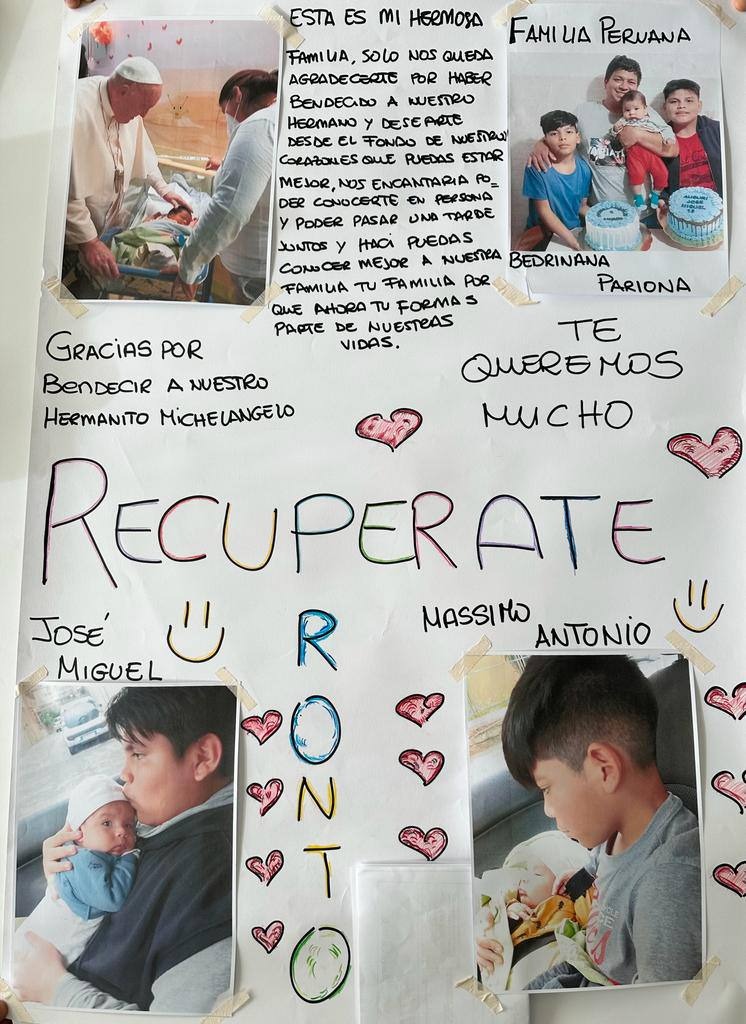 ESTA ES MI HERMOSA
FAMILIA, SOLO NOS QUEDA
AGRADECERTE POR HABER
BENDECIDO A NUESTRO
HERMANO Y DESEARTE
DESDE EL FONDO DE NUESTRO
CORAZONES QUE PUEDAS ESTAR
MEJOR, NOS ENCANTARIA PO-
DER CONOCERTE EN PERSONA
Y PODER PASAR UNA TARDE
JUNTOS Y HACI PUEDAS
CONOCER MEJOR A NUESTRA
FAMILIA TU FAMILIA POR
QUE AHORA TU FORMAS
PARTE DE NUESTRAS
VIDAS.
FAMILIA PERUANA
BEDRINANA
PARIONA
GRACIAS POR
BENDECIR A NUESTRO
HERMANITO MICHELANGELO
TE
QUEREMOS
MUCHO
RECUPERATE
PRONTO
JOSÉ
MIGUEL
MASSIMO
ANTONIO